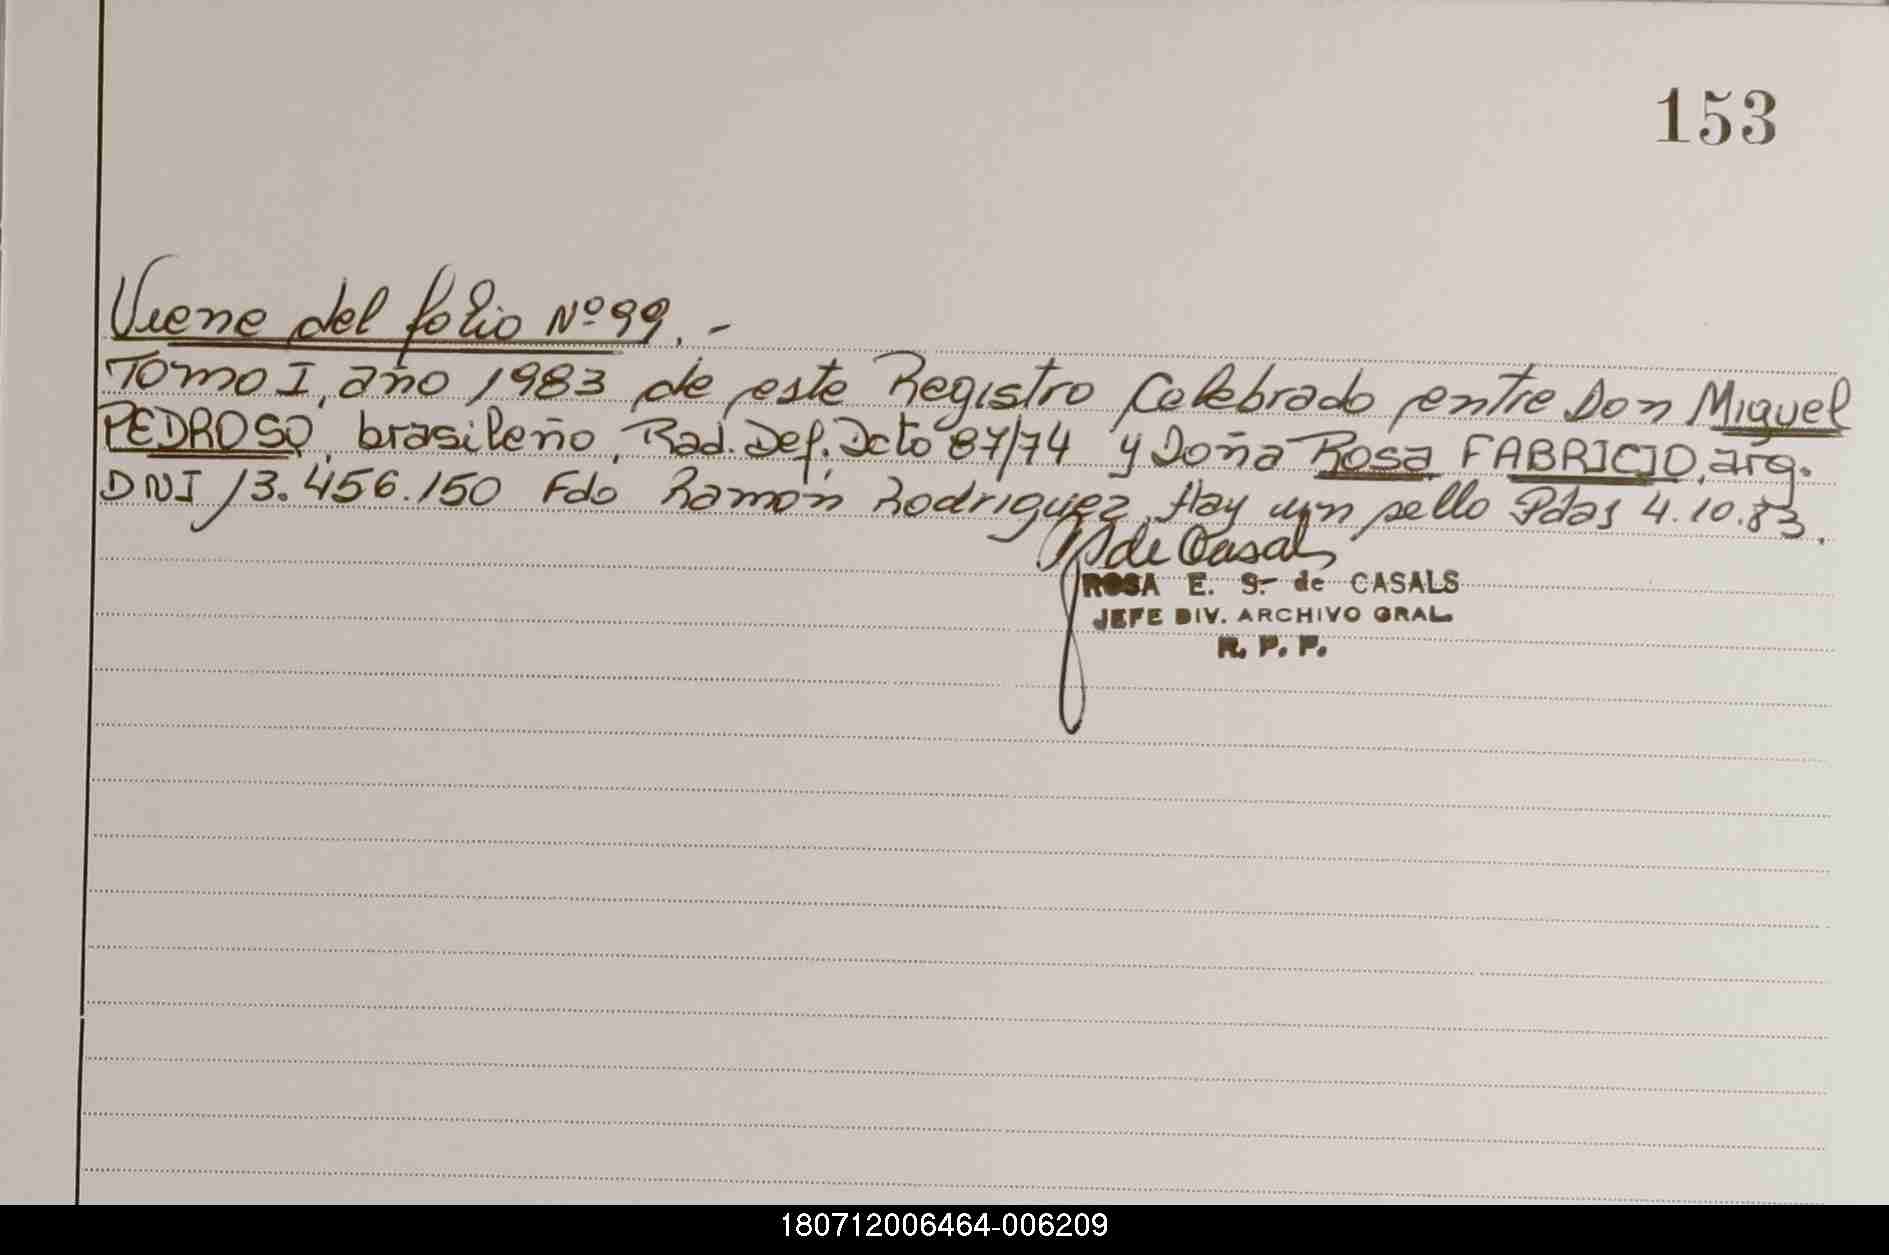 153
Viene del folio Nº 99.-
Tomo I, año 1983 de este Registro Celebrado entre Don Miguel
PEDROSO, brasileño, Rad. Def. Dcto 87/74 y Doña Rosa FABRICIO, arg.
DNI 13.456.150 Fdo Ramón Rodriguez, Hay un sello Pdas 4.10.83.
de Casals
ROSA E. S. de CASALS
JEFE DIV. ARCHIVO GRAL.
R. P. P.
180712006464-006209